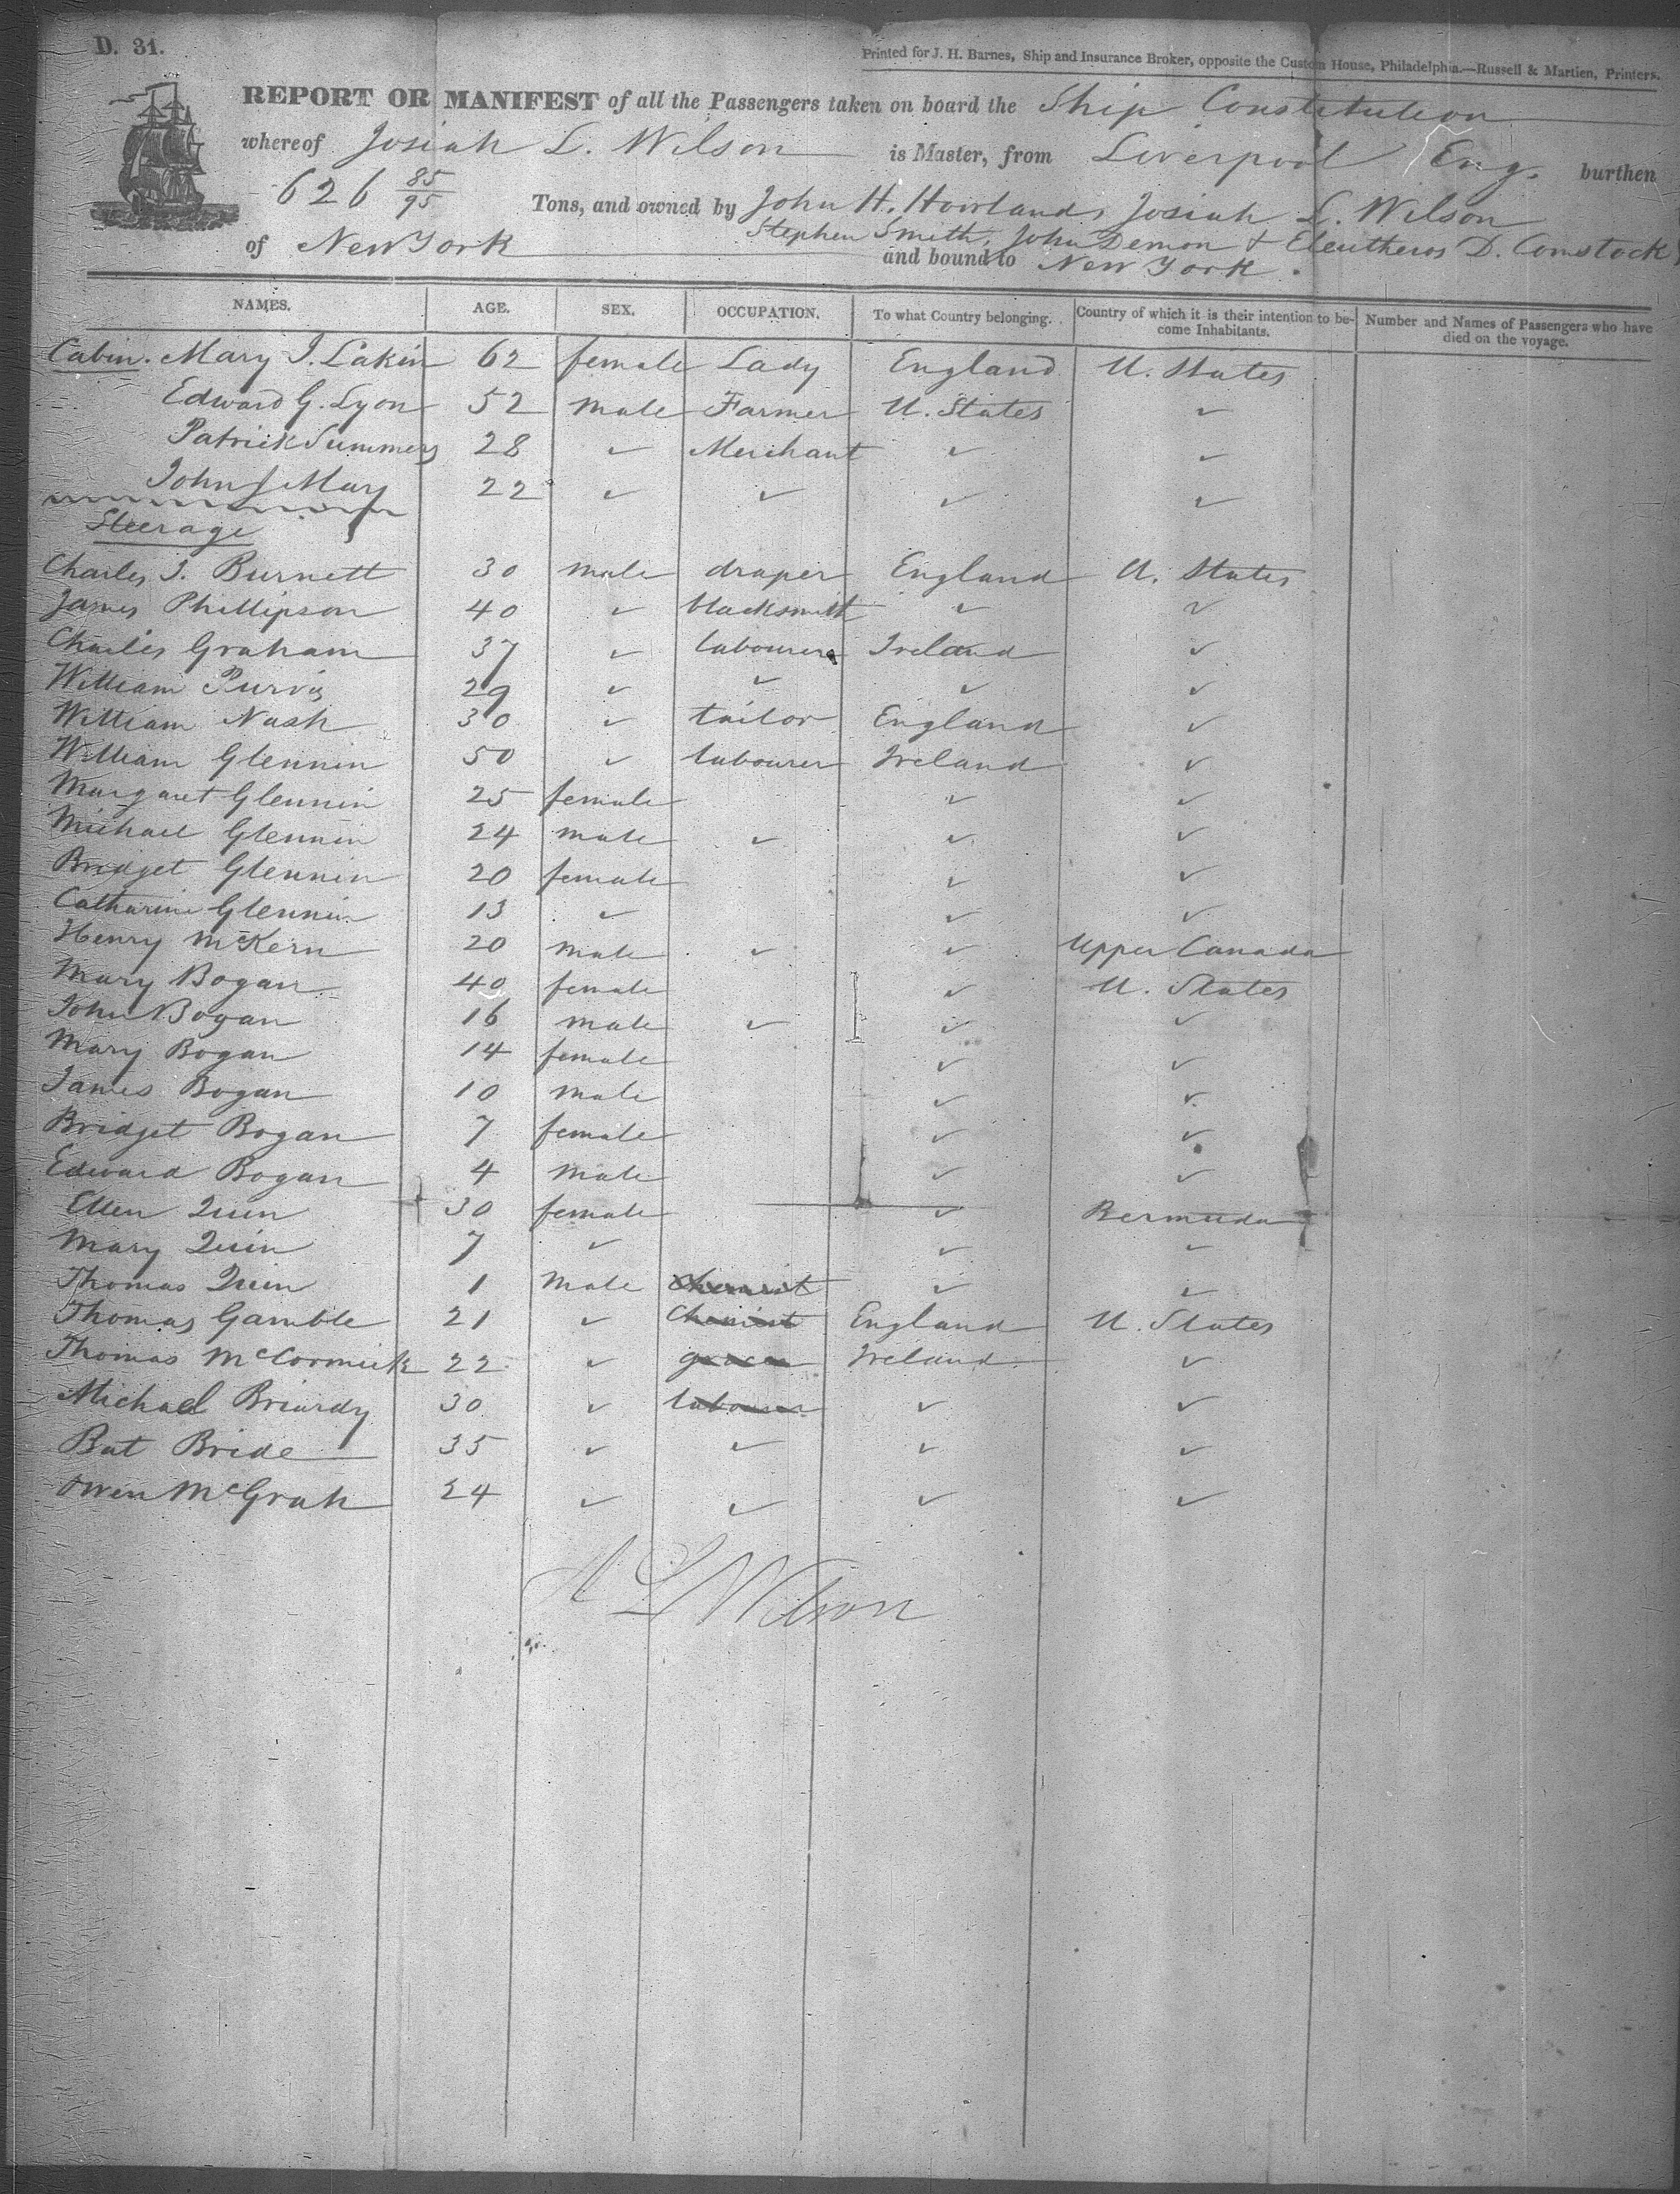 D. 31.
Printed for J. H. Barnes, Ship and Insurance Broker, opposite the Custom House, Philadelphia.—Russell & Martien, Printers.
REPORT OR MANIFEST of all the Passengers taken on board the Ship Constitution
whereof Josiah L. Wilson is Master, from Liverpool Eng. burthen
626 85/95 Tons, and owned by John H. Howland, Josiah L. Wilson
Stephen Smith, John Demon + Eleutheros D. Comstock,
of New York and bound to New York.
NAMES. AGE. SEX. OCCUPATION. To what Country belonging. Country of which it is their intention to become Inhabitants. Number and Names of Passengers who have died on the voyage.
Cabin. Mary J. Lakin 62 female Lady England U. States
Edward G. Lyon 52 male Farmer U. States ✓
Patrick Summers 28 ✓ Merchant ✓ ✓
John J Mary 22 ✓ ✓ ✓ ✓
Steerage
Charles J. Burnett 30 male draper England U. States
James Phillipson 40 ✓ blacksmith ✓ ✓
Charles Graham 37 ✓ labourer Ireland ✓
William Purvis 29 ✓ ✓ ✓ ✓
William Nash 30 ✓ tailor England ✓
William Glennin 50 ✓ labourer Ireland ✓
Margaret Glennin 25 female ✓ ✓
Michael Glennin 24 male ✓ ✓ ✓
Bridget Glennin 20 female ✓ ✓
Catharine Glennin 13 ✓ ✓ ✓
Henry McKern 20 male ✓ ✓ Upper Canada
Mary Bogan 40 female ✓ U. States
John Bogan 16 male ✓ ✓ ✓
Mary Bogan 14 female ✓ ✓
James Bogan 10 male ✓ ✓
Bridget Bogan 7 female ✓ ✓
Edward Bogan 4 male ✓ ✓
Ellen Quin 30 female ✓ Bermuda
Mary Quin 7 ✓ ✓ ✓
Thomas Quin 1 male chemist ✓ ✓
Thomas Gamble 21 ✓ chemist England U. States
Thomas McCormick 22 ✓ grocer Ireland ✓
Michael Briardy 30 ✓ labourer ✓ ✓
Bat Bride 35 ✓ ✓ ✓ ✓
Owen McGrah 24 ✓ ✓ ✓ ✓
L Wilson